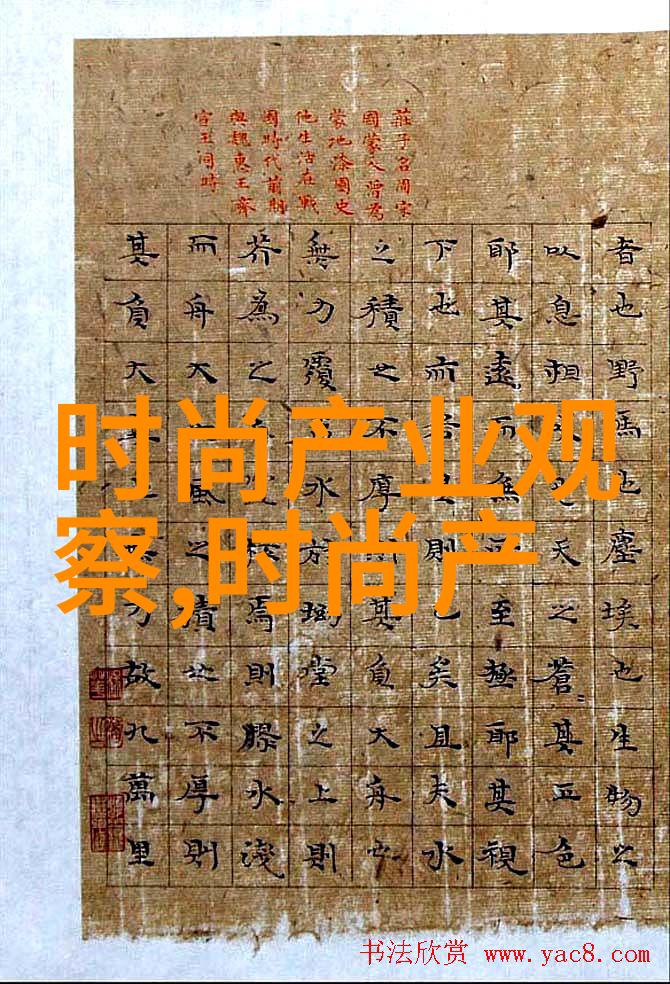 莊子名周宋
國蒙人曾為
蒙地漆園史
他生活在戰
國時代前期
與魏惠王齊
宣王同時
者也野馬也塵埃也生物之
以息相天之蒼〻其正色
耶其遠而至極耶其視
下也而若則已矣且夫水
之積也不厚其負大舟也
無力覆水於坳堂之上則
芥為之焉則膠水淺
而舟大風之積也不厚則
其負大力故九萬里
时尚产业观
察,时尚产
书法欣赏 www.yac8.com